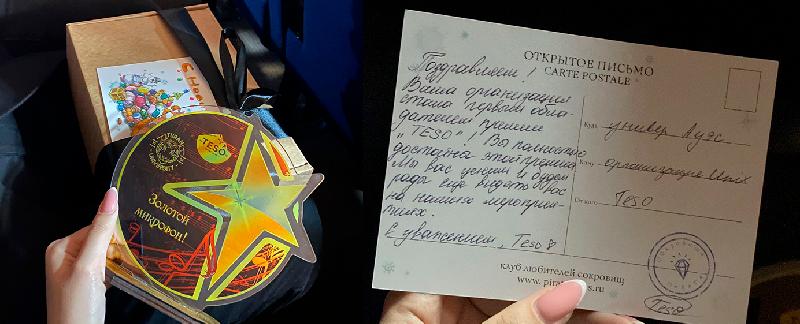 TESO
Золотой
микрофон!
ОТКРЫТОЕ ПИСЬМО
CARTE POSTALE
Поздравляем!
Ваша организация
стала первым обла-
дателем премии
"TESO"! Вы полностью
достойны этой премии
Мы вас ценим и будем
рады ещё видеть вас
на наших мероприя-
тиях.
С уважением, Teso
Куда универ
Кому организация
От кого Teso
клуб любителей сокровищ
Teso